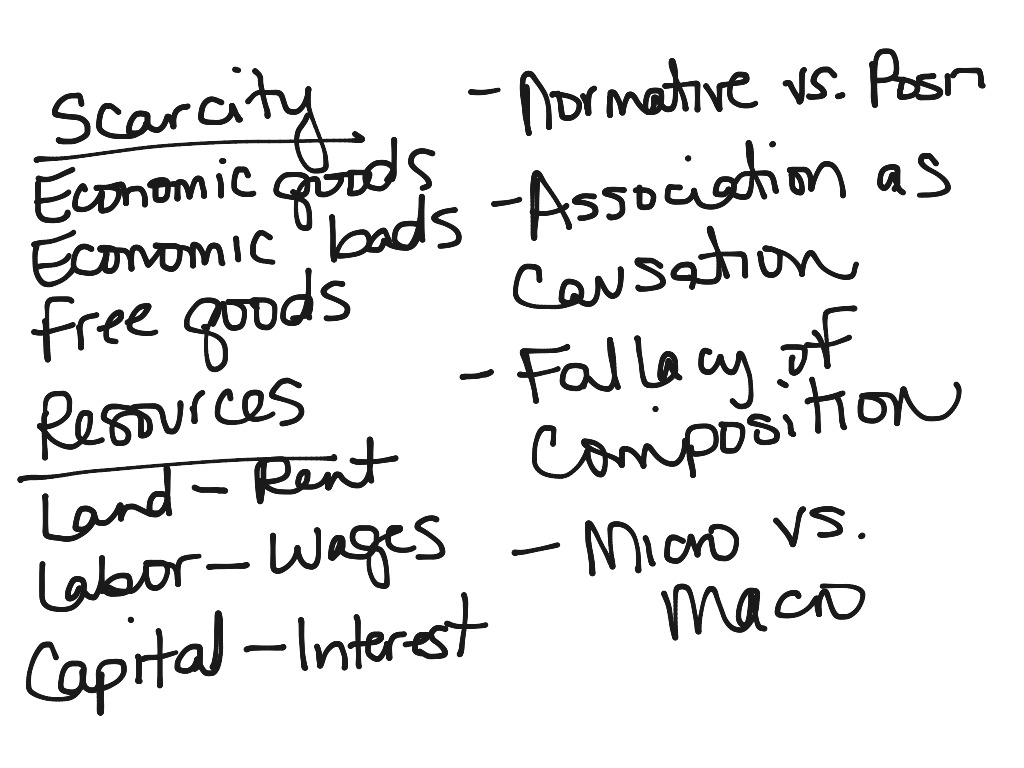 Scarcity
Economic goods
Economic bads
Free goods
Resources
Land - Rent
Labor - Wages
Capital - Interest
- Normative vs.
- Association as
Causation
- Fallacy of
Composition
- Micro vs.
Macro